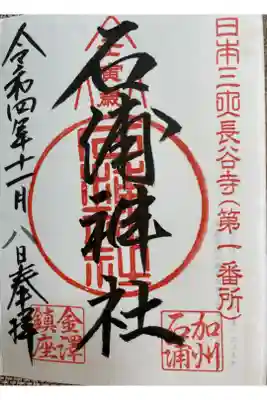 日本三大長谷寺(第一番所)
加州
石浦
壬寅歳
石浦神社
令和四年十一月八日奉拝
金澤
鎮座